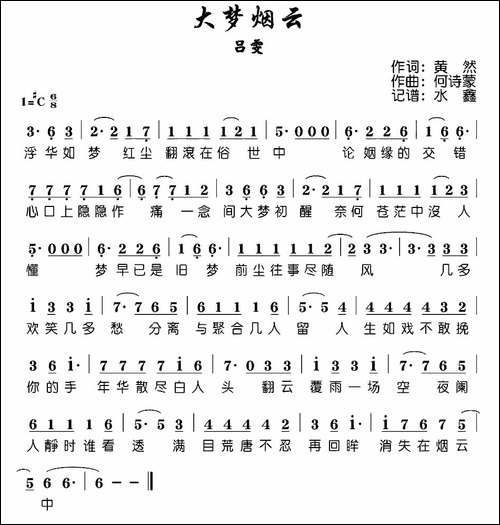 大梦烟云
吕雯
作词：黄 然
作曲：何诗蒙
记谱：水 鑫
1=♯C 6/8
3· 6 3 | 2· 2 1 7 | 1 1 1 1 2 1 | 5· 0 0 0 | 6· 2 2 6 | 1 6 6· |
浮华如 梦 红尘 翻滚在俗 世中 论 姻缘的 交 错
7 7 7 7 1 6 | 6 7 7 1 | 6· 5 3 | 5 5 5 5 6 7 | 7· 7 7 | 1 1 1 2 3 |
心口上隐隐作 痛 一念 间大梦初 醒 奈何 苍茫中沒 人
5· 0 0 0 | 6· 2 2 6 | 1 6 6· | 1 1 1 1 1 2 | 2 3 3· | 3· 3 3 |
懂 梦早已是 旧 梦 前尘往事尽随 风 几多
1 3 3 1 | 7· 7 6 5 | 6 1 1 1 6 | 5· 5 4 | 4 4 4 4 3 4 | 7· 7 6 5 |
欢笑几多 愁 分离 与聚合几人 留 人 生如戏不敢挽
3 6 1 | 7 7 7 7 1 | 6· 7 6 7 | 0 3 3 0 2 1 | 2· 2 | 2 1 7 |
你的手 年华散尽白人 头 翻云 覆雨一场 空 夜阑
6 1 1 1 6 | 5· 5 4 | 4 3 3 3 2 1 | 2· 3 3 | 2 1 1 1 7 1 |
人靜时谁看 透 满 目荒唐不忍 再回眸 消失在烟云
5 6 6· | 6 - - ‖
中